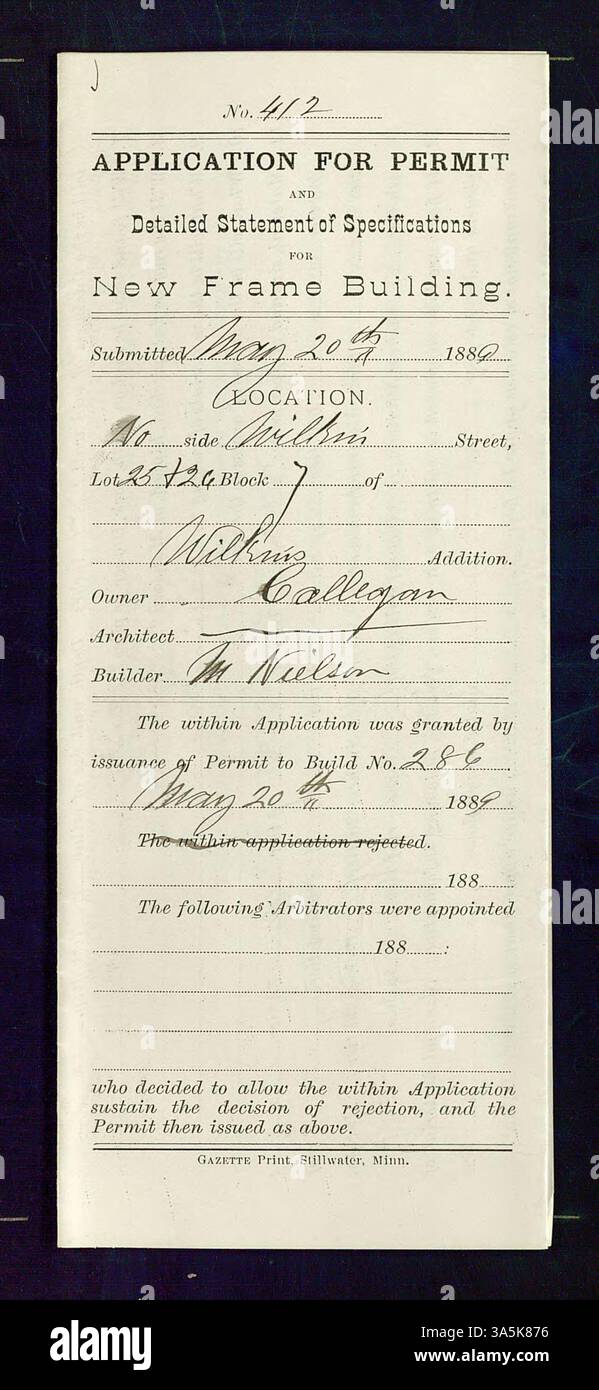 No. 412
APPLICATION FOR PERMIT
AND
Detailed Statement of Specifications
FOR
New Frame Building.
Submitted May 20th 1889
LOCATION.
No side Wilkins Street,
Lot 25 + 26 Block 7 of
Wilkins Addition.
Owner Callegan
Architect
Builder M Nielson
The within Application was granted by
issuance of Permit to Build No. 286
May 20th 1889
The within application rejected.
188
The following Arbitrators were appointed
188 :
who decided to allow the within Application
sustain the decision of rejection, and the
Permit then issued as above.
GAZETTE Print, Stillwater, Minn.
alamy
Image ID: 3A5K876
www.alamy.com